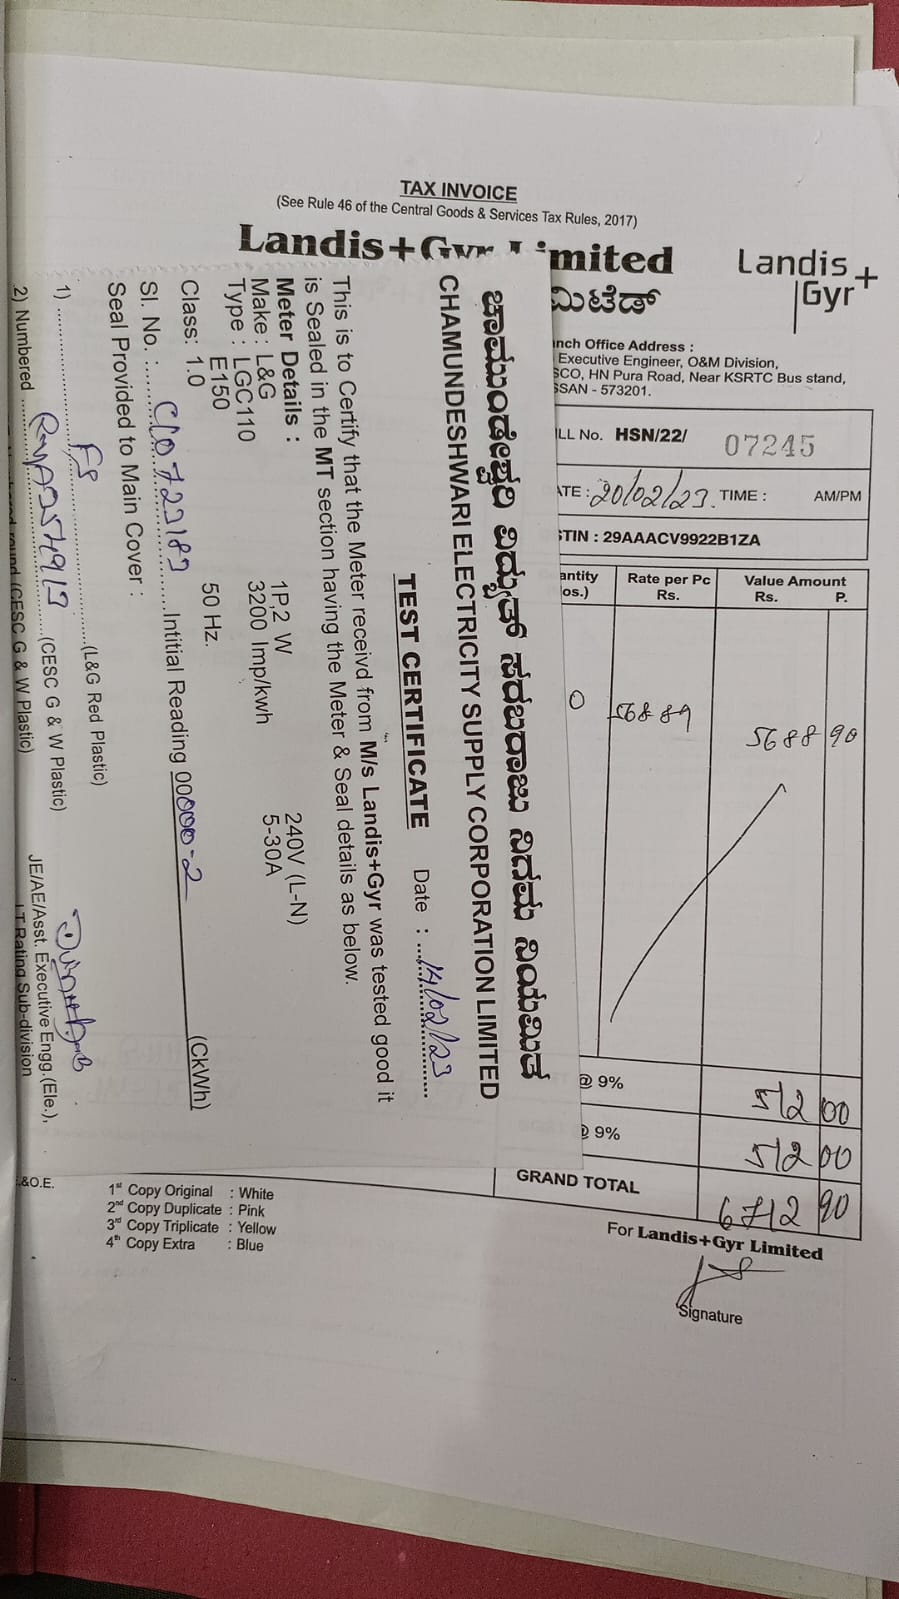 TAX INVOICE
(See Rule 46 of the Central Goods & Services Tax Rules, 2017)
Landis+Gyr Limited
Landis
Gyr+
ಮಿಟೆಡ್
nch Office Address :
Executive Engineer, O&M Division,
SCO, HN Pura Road, Near KSRTC Bus stand,
SSAN - 573201.
LL No. HSN/22/ 07245
ATE : 20/02/23. TIME : AM/PM
STIN : 29AAACV9922B1ZA
antity Rate per Pc Value Amount
os.) Rs. Rs. P.
0 56889 5688 90
@ 9% 512 00
@ 9% 512 00
GRAND TOTAL 6712 90
For Landis+Gyr Limited
Signature
&O.E.
1st Copy Original : White
2nd Copy Duplicate : Pink
3rd Copy Triplicate : Yellow
4th Copy Extra : Blue
ಚಾಮುಂಡೇಶ್ವರಿ ವಿದ್ಯುತ್ ಸರಬರಾಜು ನಿಗಮ ನಿಯಮಿತ
CHAMUNDESHWARI ELECTRICITY SUPPLY CORPORATION LIMITED
TEST CERTIFICATE Date : 14/02/23
This is to Certify that the Meter receivd from M/s Landis+Gyr was tested good it
is Sealed in the MT section having the Meter & Seal details as below.
Meter Details :
Make : L&G 1P,2 W 240V (L-N)
Type : LGC110 3200 Imp/kwh 5-30A
E150
Class: 1.0 50 Hz.
Sl. No. : Intitial Reading 00000-2 (CkWh)
Seal Provided to Main Cover :
1) (L&G Red Plastic)
(CESC G & W Plastic)
2) Numbered (CESC G & W Plastic)
JE/AE/Asst. Executive Engg.(Ele.),
LT Rating Sub-division